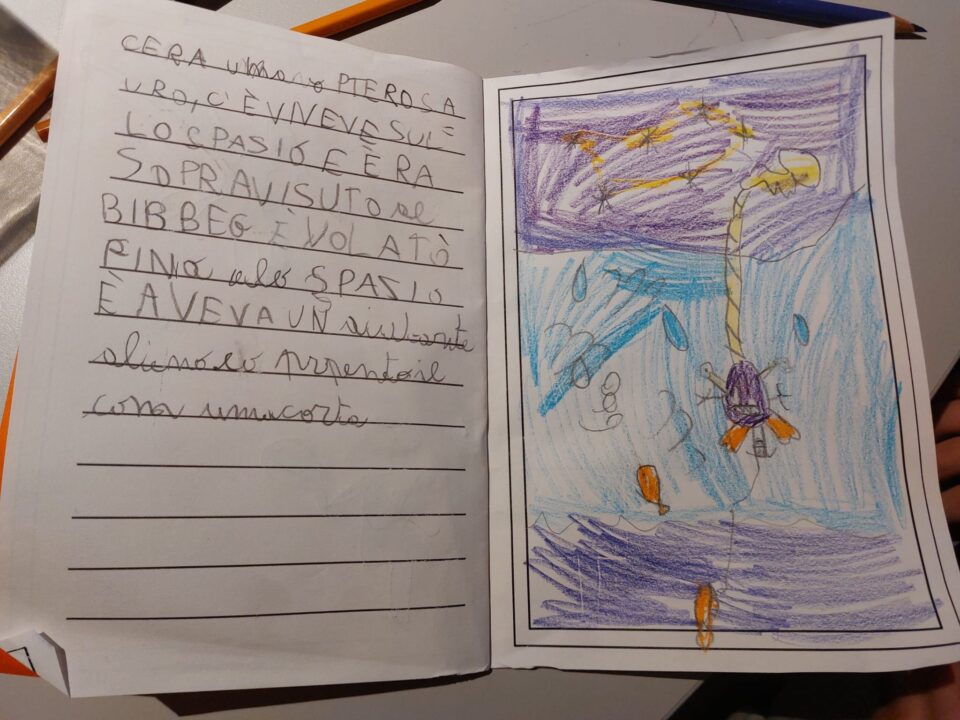 CERA uno PTEROSA
URO, C'È VIVEVE SUL=
LO SPASIO E ÈRA
SOPRAVISUTO al
BIBBEG È VOLATÒ
FINO alo SPASIO
È AVEVA UN aiutante
alieno
con una corta